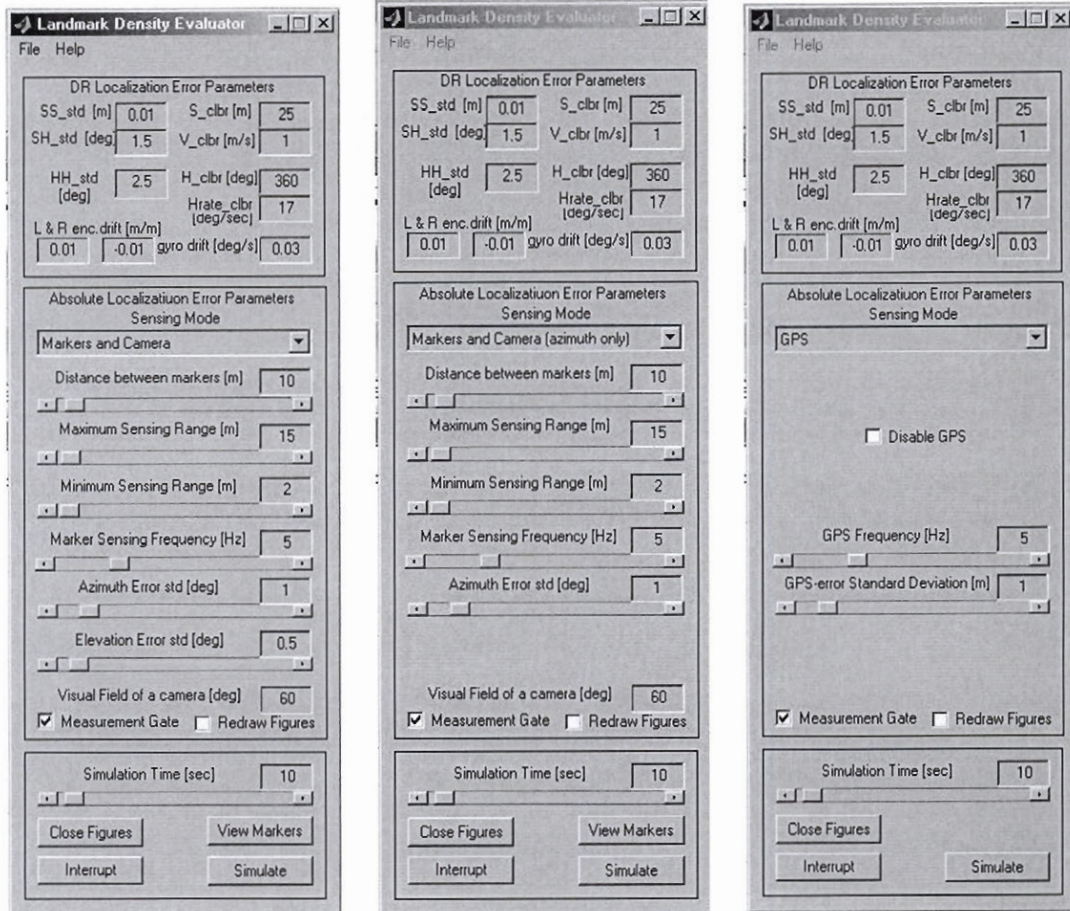 Landmark Density Evaluator
File Help
DR Localization Error Parameters
SS_std [m] 0.01 S_clbr [m] 25
SH_std [deg] 1.5 V_clbr [m/s] 1
HH_std [deg] 2.5 H_clbr [deg] 360
Hrate_clbr [deg/sec] 17
L & R enc.drift [m/m]
0.01 -0.01 gyro drift [deg/s] 0.03
Absolute Localizatiuon Error Parameters
Sensing Mode
Markers and Camera
Distance between markers [m] 10
Maximum Sensing Range [m] 15
Minimum Sensing Range [m] 2
Marker Sensing Frequency [Hz] 5
Azimuth Error std [deg] 1
Elevation Error std [deg] 0.5
Visual Field of a camera [deg] 60
Measurement Gate Redraw Figures
Simulation Time [sec] 10
Close Figures View Markers
Interrupt Simulate
Landmark Density Evaluator
File Help
DR Localization Error Parameters
SS_std [m] 0.01 S_clbr [m] 25
SH_std [deg] 1.5 V_clbr [m/s] 1
HH_std [deg] 2.5 H_clbr [deg] 360
Hrate_clbr [deg/sec] 17
L & R enc.drift [m/m]
0.01 -0.01 gyro drift [deg/s] 0.03
Absolute Localizatiuon Error Parameters
Sensing Mode
Markers and Camera (azimuth only)
Distance between markers [m] 10
Maximum Sensing Range [m] 15
Minimum Sensing Range [m] 2
Marker Sensing Frequency [Hz] 5
Azimuth Error std [deg] 1
Visual Field of a camera [deg] 60
Measurement Gate Redraw Figures
Simulation Time [sec] 10
Close Figures View Markers
Interrupt Simulate
Landmark Density Evaluator
File Help
DR Localization Error Parameters
SS_std [m] 0.01 S_clbr [m] 25
SH_std [deg] 1.5 V_clbr [m/s] 1
HH_std [deg] 2.5 H_clbr [deg] 360
Hrate_clbr [deg/sec] 17
L & R enc.drift [m/m]
0.01 -0.01 gyro drift [deg/s] 0.03
Absolute Localizatiuon Error Parameters
Sensing Mode
GPS
Disable GPS
GPS Frequency [Hz] 5
GPS-error Standard Deviation [m] 1
Measurement Gate Redraw Figures
Simulation Time [sec] 10
Close Figures
Interrupt Simulate